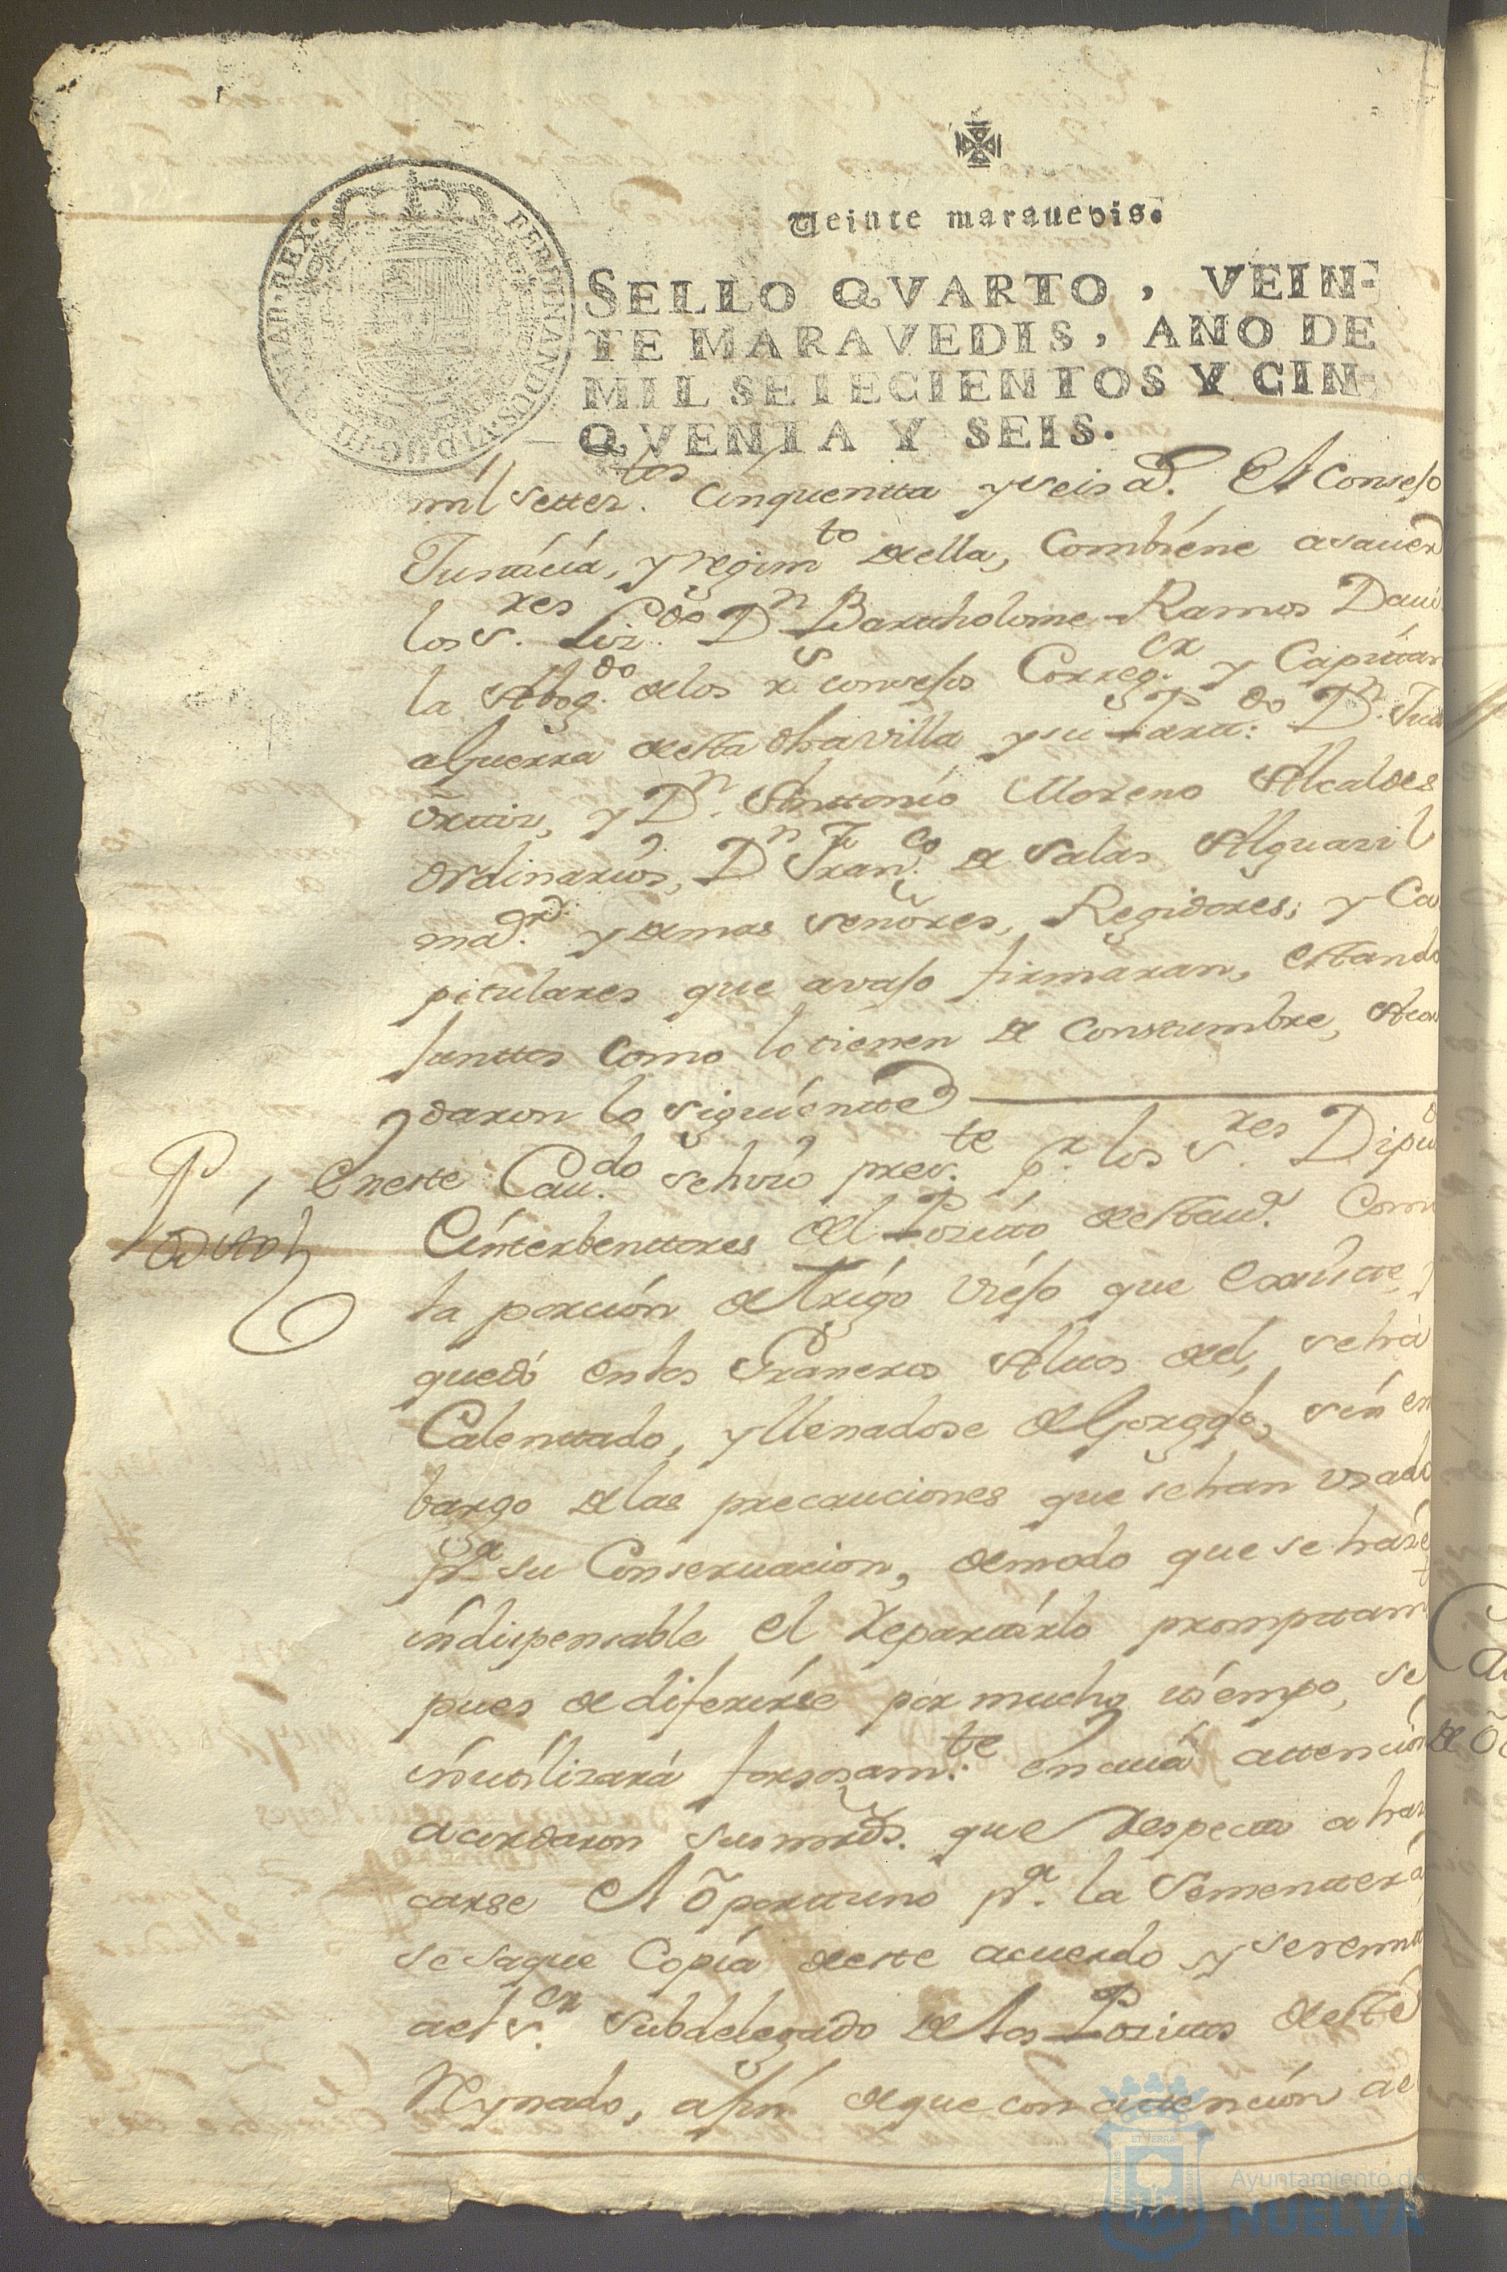 Veinte maravedis.
SELLO QVARTO, VEIN-
TE MARAVEDIS, AÑO DE
MIL SETECIENTOS Y CIN-
QVENTA Y SEIS.
FERDINANDUS·VI·D·G·HISPANIAR·REX·
mil settez.tos cinquentta y seis a.s El Consejo
Justicia, y regim.to de ella, Combiene a saver
los S.res Liz.do D.n Bartholome Ramos Davi
la Abog.do de los r.s consejos Correg.or y Capitan
a Guerra de sta dha villa y su Part.do D.n Juan
Ortiz, y D.n Anttonio Moreno Alcaldes
Ordinarios, D.n Fran.co de Salas Alguazil
ma.or y demas señores, Regidores, y Ca
pitulares que avajo firmaran, estando
Junttos como lo tienen de constumbre, Acor
daron lo siguientte
En este Cav.do se hizo pres.te p.r los S.res Dipu
e intterbenttores del Posito de sta v.a Como
la porcion de trigo viejo que existe, y
quedó en los Graneros Altos del, se há
Calenttado, y llenadose de Gorgojo, sin em
bargo de las precauciones que se han usado
p.a su Conservacion, de modo que se haze
indispensable el repartirlo promptam.te
pues de diferirse por mucho tiempo, se
inutilizará forsosam.te en cuia attencion
acordaron sus mrds. que respecto a har
carse el oportuno p.a la sementtera
se saque Copia de este acuerdo y se remita
al S.or Subdelegado de los Positos de este
Reynado, a fin de que con attencion al
Ayuntamiento de
HUELVA